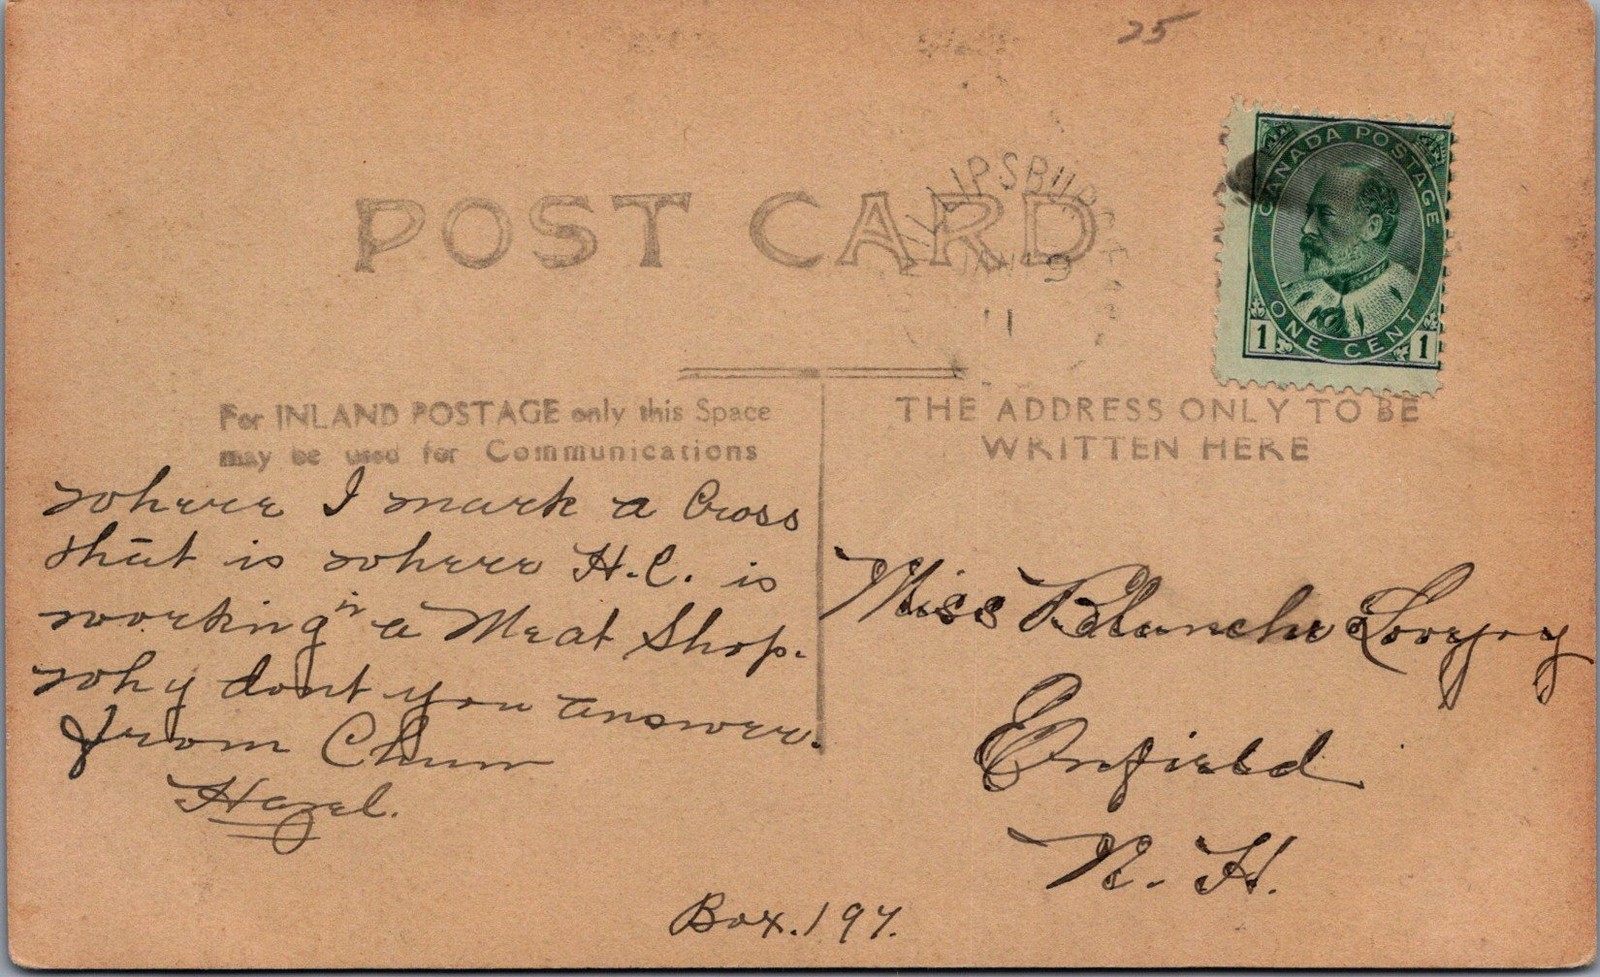 25
POST CARD
LIPSBU
9
11
CANADA POSTAGE
ONE CENT
1 1
For INLAND POSTAGE only this Space
may be used for Communications
THE ADDRESS ONLY TO BE
WRITTEN HERE
where I mark a Cross
that is where H.C. is
working in a Meat Shop.
why dont you answer.
from Chum
Hazel.
Miss Blanche Lovejoy
Enfield
N. H.
Box. 197.